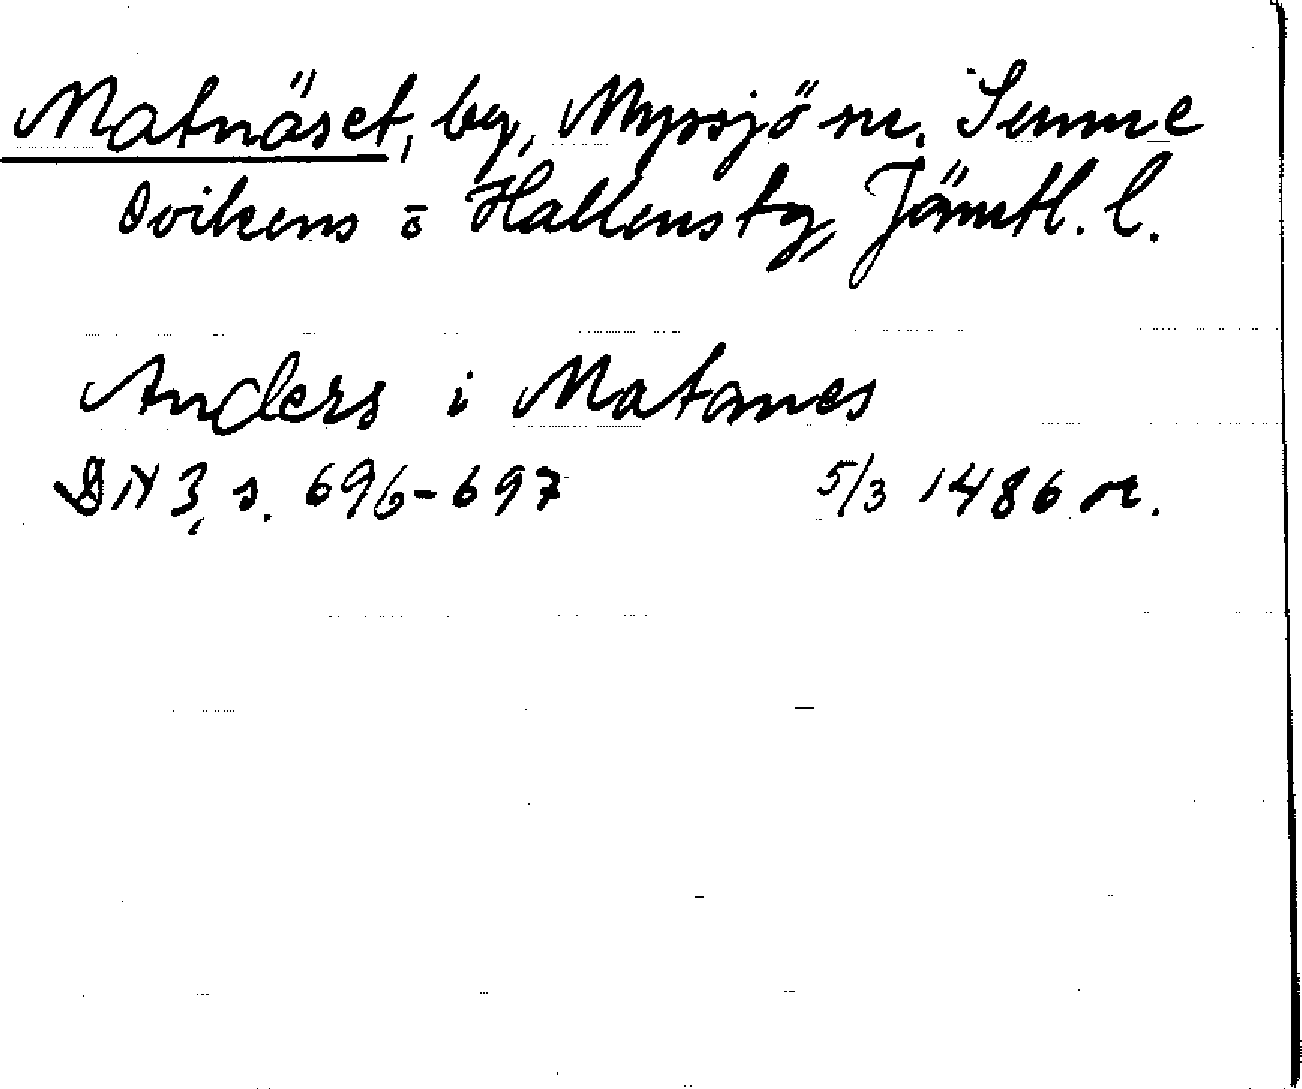 Matnäset, by, Myssjö sn. Sunne
Ovikens o Hallens tg, Jämtl. l.
Anders i Matanes
DN 3, s. 696-697 5/3 1486 or.